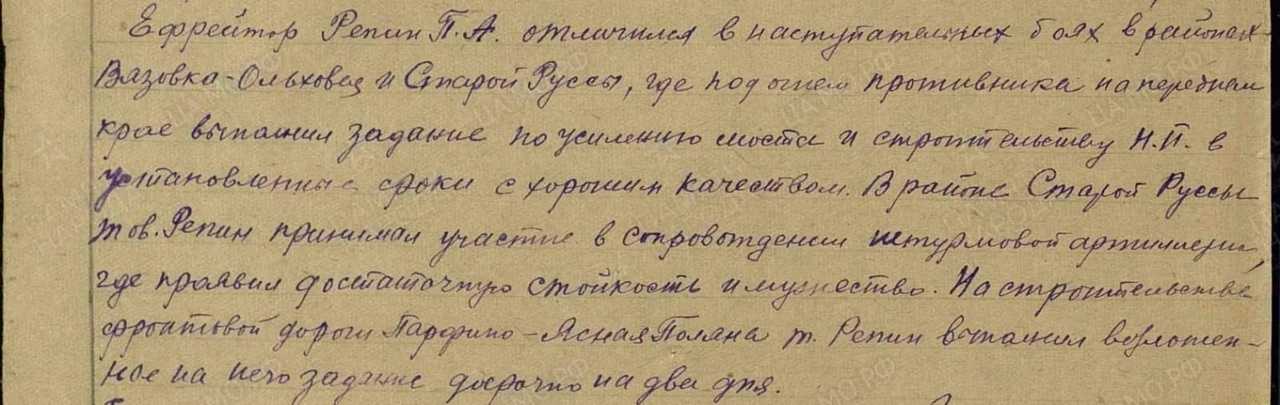 Ефрейтор Репин П.А. отличился в наступательных боях в районах
Вязовка-Ольховец и Старой Руссы, где под огнем противника на переднем
крае выполнил задание по усилению моста и строительству Н.П. в
установленные сроки с хорошим качеством. В районе Старой Руссы
тов. Репин принимал участие в сопровождении штурмовой артиллерии,
где проявил достаточную стойкость и мужество. На строительстве
фронтовой дороги Парфино-Ясная Поляна т. Репин выполнил возложен-
ное на него задание досрочно на два дня.